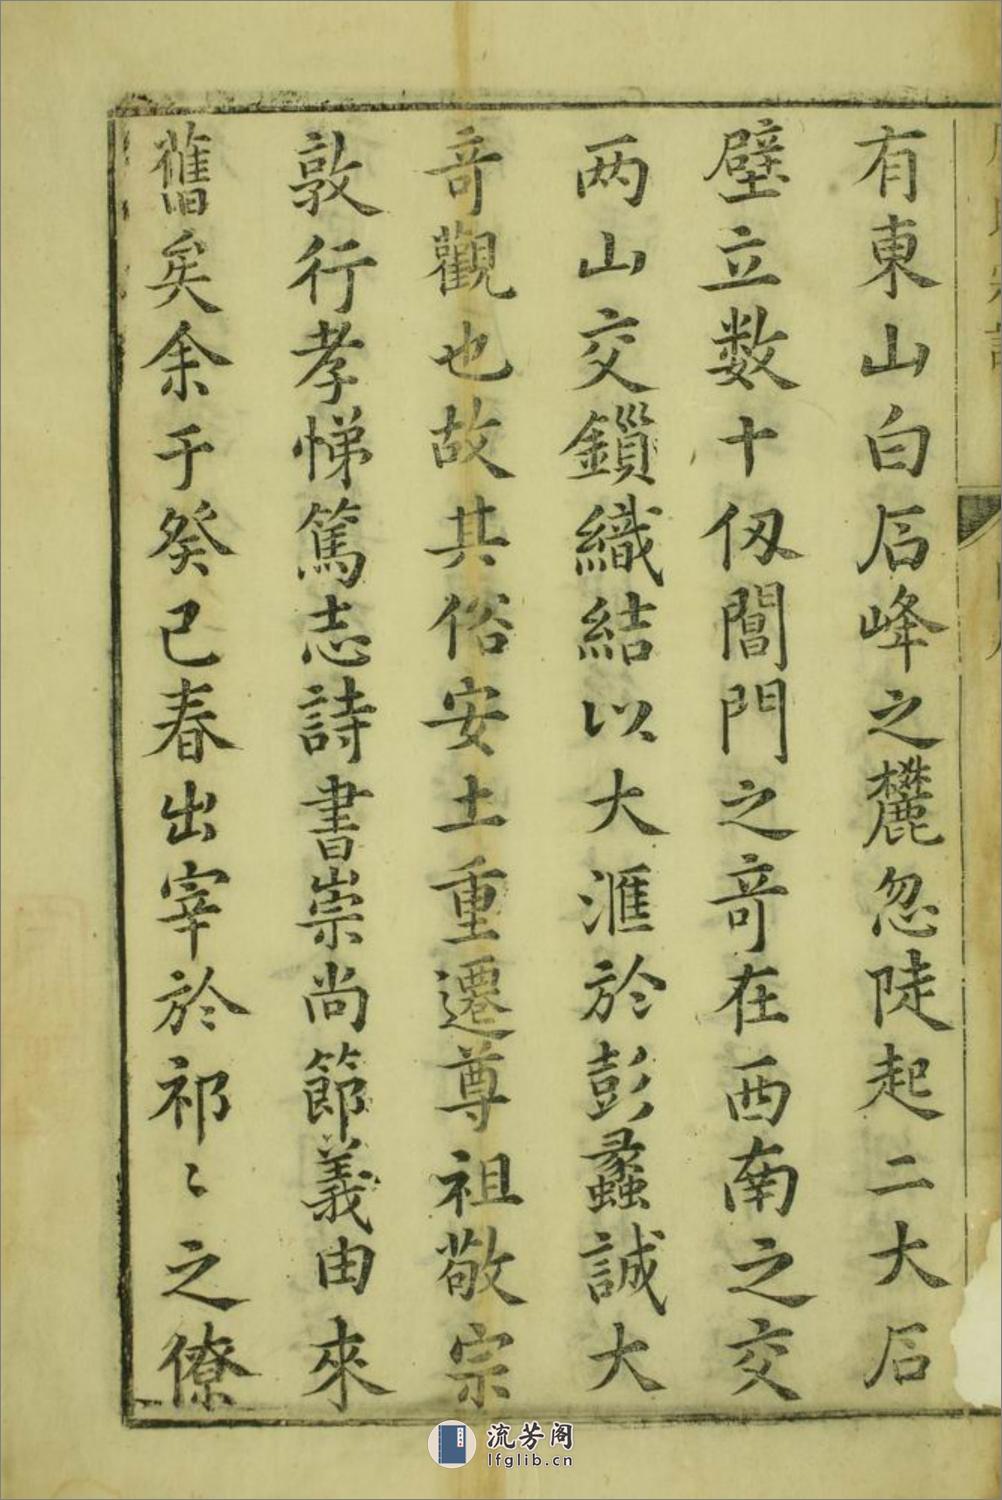 有東山白石峰之麓忽陡起二大石
壁立数十仭閶門之竒在西南之交
两山交鎻織結以大滙於彭蠡誠大
竒觀也故其俗安土重遷尊祖敬宗
敦行孝悌篤志詩書崇尚節義由來
舊矣余于癸已春出宰於祁〻之僚
流芳阁
lfglib.cn